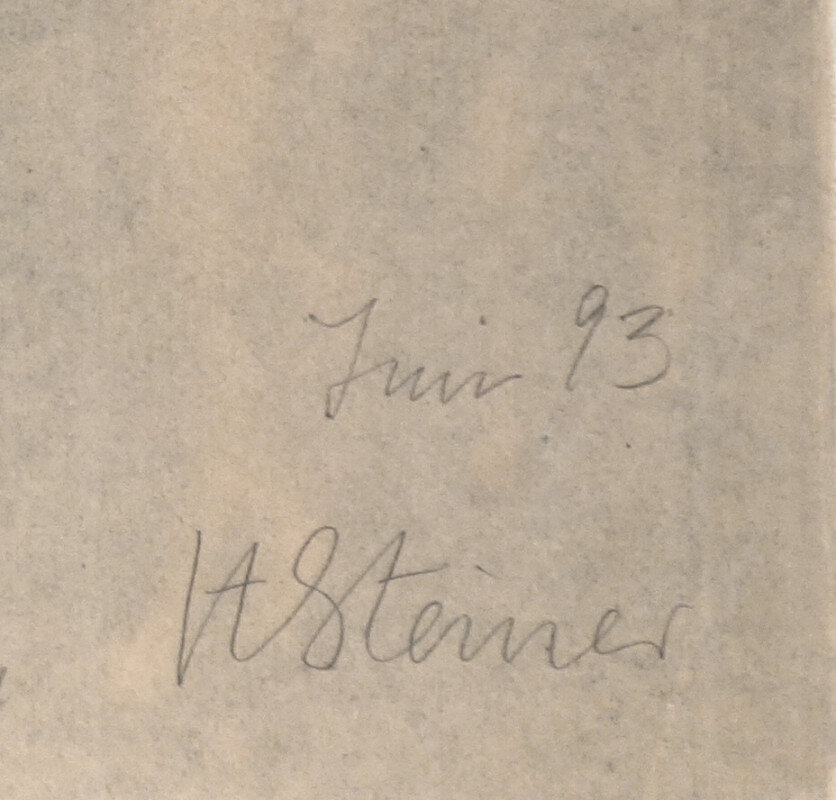 Juin 93
H Steiner